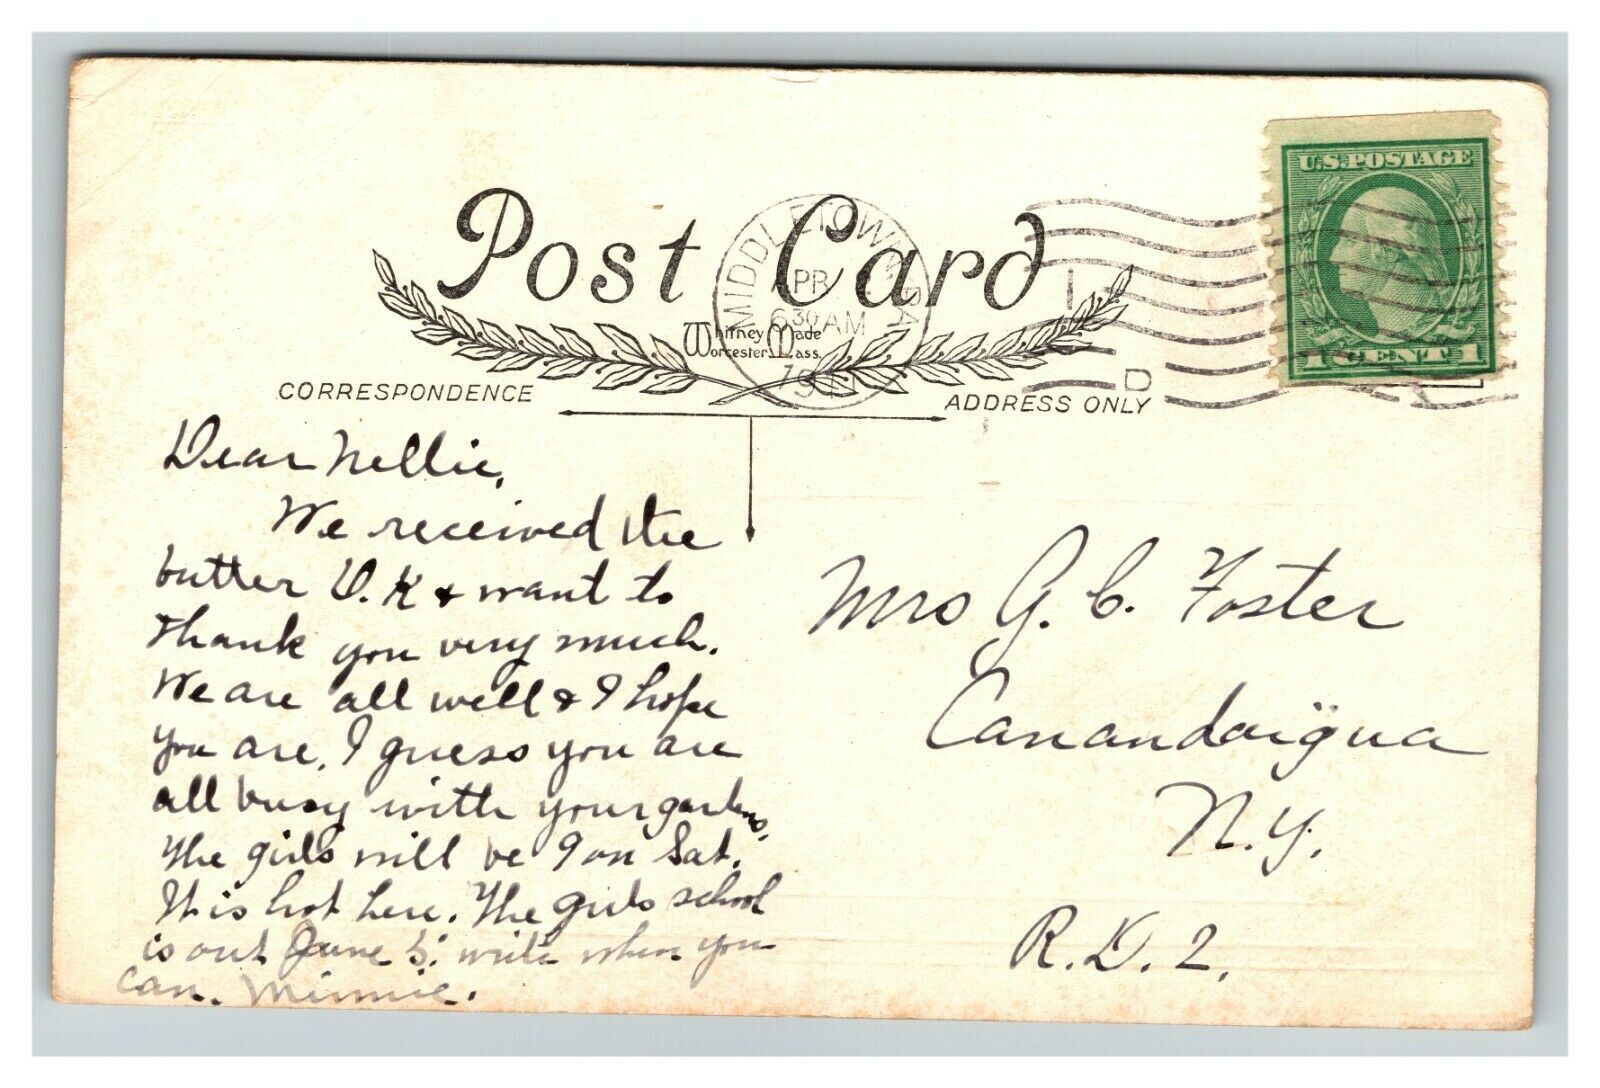 Post Card
MIDDLETOWN PA
APR
6 30 AM
U.S. POSTAGE
1 CENT 1
Whitney Made
Worcester Mass.
D
CORRESPONDENCE
ADDRESS ONLY
Dear Nellie,
We received the
butter O.K & want to
thank you very much.
We are all well & I hope
you are. I guess you are
all busy with your gardens.
The girls will be 9 on Sat.
It is hot here. The girls school
is out June 5. write when you
can. Minnie.
Mrs G. C. Foster
Canandaigua
N.Y.
R.D. 2.